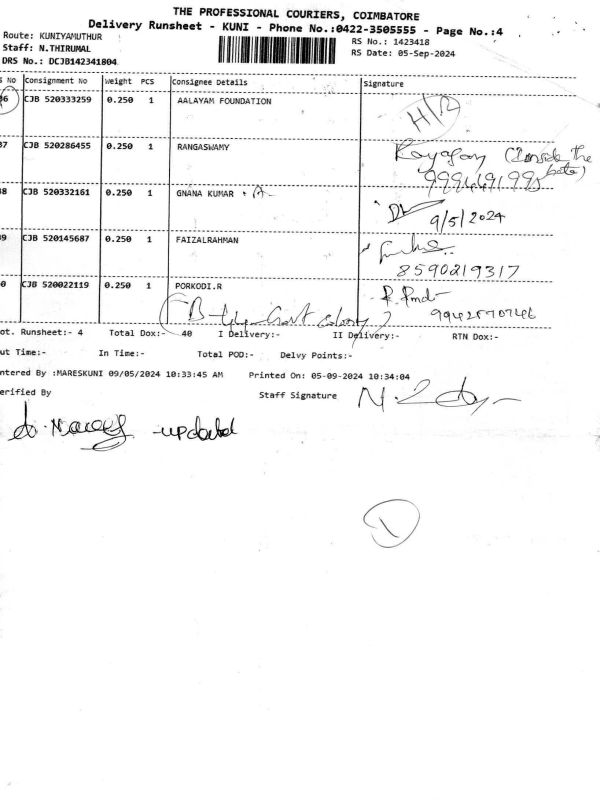 THE PROFESSIONAL COURIERS, COIMBATORE
Delivery Runsheet - KUNI - Phone No.:0422-3505555 - Page No.:4
Route: KUNIYAMUTHUR
RS No.: 1423418
Staff: N.THIRUMAL
RS Date: 05-Sep-2024
DRS No.: DCJB142341804
S No Consignment No Weight PCS Consignee Details Signature
36 CJB 520333259 0.250 1 AALAYAM FOUNDATION
37 CJB 520286455 0.250 1 RANGASWAMY (Inside the gate)
38 CJB 520332161 0.250 1 GNANA KUMAR . A 9/5/2024
39 CJB 520145687 0.250 1 FAIZALRAHMAN
8590219317
0 CJB 520022119 0.250 1 PORKODI.R
ot. Runsheet:- 4 Total Dox:- 40 I Delivery:- II Delivery:- RTN Dox:-
ut Time:- In Time:- Total POD:- Delvy Points:-
ntered By :MARESKUNI 09/05/2024 10:33:45 AM Printed On: 05-09-2024 10:34:04
erified By Staff Signature
-updated
1